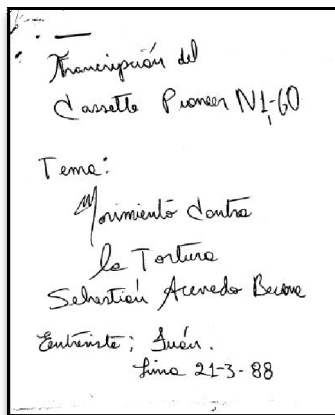 Transcripción del
Cassette Pioneer N1-60
Tema:
Movimiento Contra
la Tortura
Sebastián Acevedo
Entrevista; Juán.
Lima 21-3-88